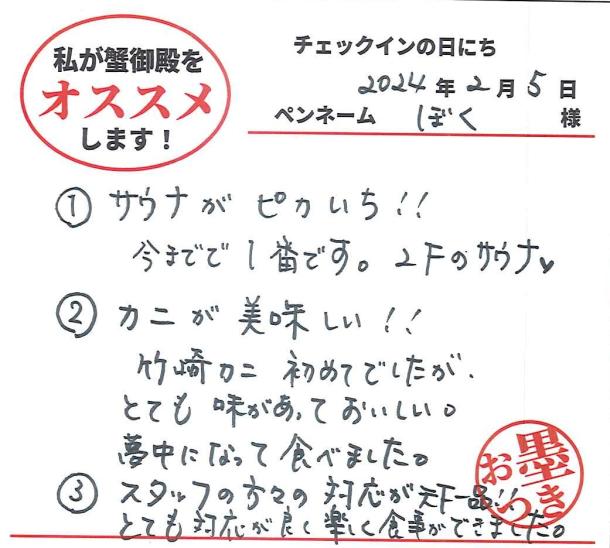 私が蟹御殿を
オススメ
します！
チェックインの日にち
2024年2月5日
ペンネーム ぼく 様
① サウナが ピカいち!!
今までで1番です。2Fのサウナ♥
② カニが美味しい!!
竹崎カニ 初めてでしたが、
とても 味があって おいしい。
夢中になって 食べました。
③ スタッフの方々の 対応が天下一品!!
とても対応が良く楽しく食事ができました。
お墨つき